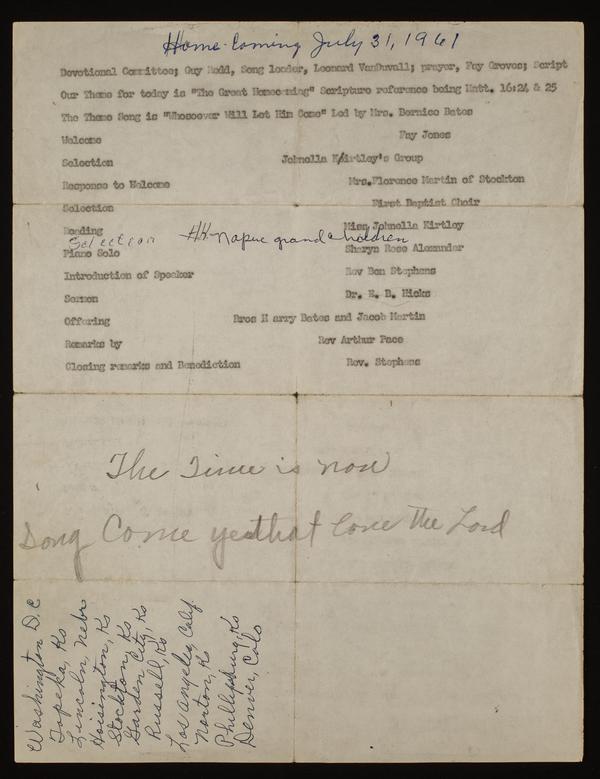 Home-Coming July 31, 1961
Devotional Committee; Guy Redd, Song leader, Leonard VanDuvall; prayer, Fay Groves; Script
Our Theme for today is "The Great Homecoming" Scripture reference being Matt. 16:24 & 25
The Theme Song is "Whosoever Will Let Him Come" Led by Mrs. Bernice Bates
Welcome Fay Jones
Selection Johnella Kirtley's Group
Response to Welcome Mrs.Florence Martin of Stockton
Selection First Baptist Choir
Reading Miss Johnella Kirtley
Selection grand children
Piano Solo Sharyn Rose Alexander
Introduction of Speaker Rev Ben Stephens
Sermon Dr. E. B. Hicks
Offering Bros H arry Bates and Jacob Martin
Remarks by Rev Arthur Pace
Closing remarks and Benediction Rev. Stephens
The Time is now
Song Come ye that love The Lord
Washington D.C
Topeka, Ks
Lincoln, Nebr
Hoisington, Ks
Stockton, Ks
Garden City, Ks
Russell, Ks
Los Angeles, Calif.
Norton, Ks
Phillipsburg, Ks
Denver, Colo